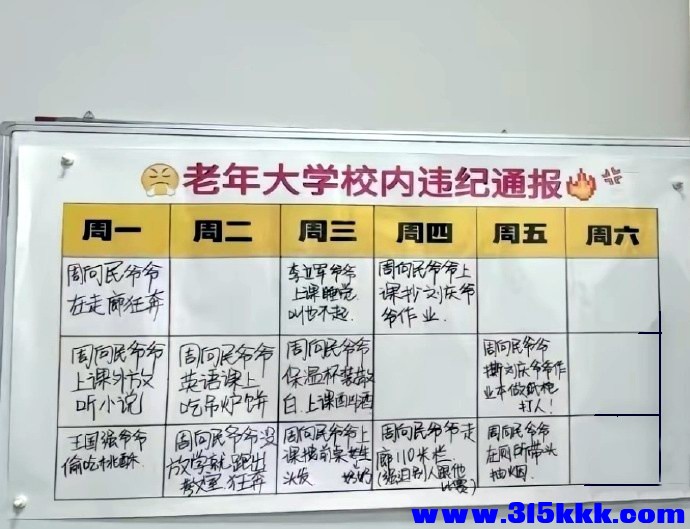 老年大学校内违纪通报
周一 周二 周三 周四 周五 周六
周向民爷爷
在走廊狂奔
李立军爷爷
上课睡觉
叫也不起.
周向民爷爷上
课抄刘庆爷
爷作业.
周向民爷爷
上课外放
听小说
周向民爷爷
英语课上
吃吊炉饼
周向民爷爷
保温杯装散
白.上课喝酒
周向民爷爷
撕刘庆爷爷作
业本做纸枪
打人!
王国强爷爷
偷吃桃酥.
周向民爷爷没
放学就跑出
教室狂奔
周向民爷爷上
课揪前桌女生
头发 奶奶
周向民爷爷走
廊110米栏.
(强迫别人跟他
比赛)
周向民爷爷
在厕所带头
抽烟.
www.315kkk.com